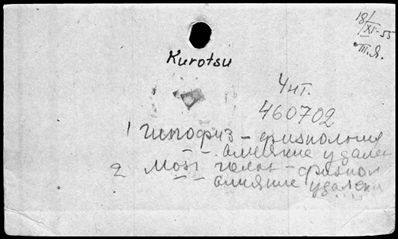 18/XI-55
Т.Я.
Kurotsu
Чит.
460702
1 Гипофиз - физиология
- влияние удален
2 Мозг голов - физиол
влияние удалени